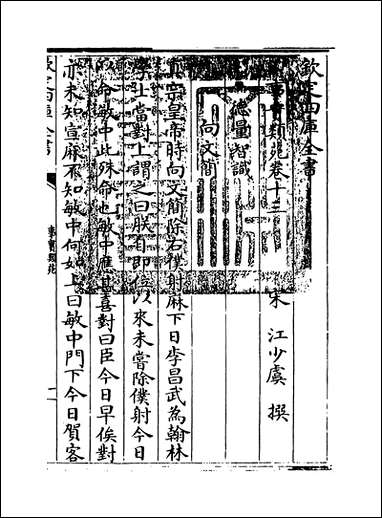 欽定四庫全書
事實類苑卷十三
宋 江少虞 撰
德量智識
向文簡
真宗皇帝時向文簡除右僕射麻下日李昌武為翰林
學士當對上謂之曰朕自即位以來未嘗除僕射今日
以命敏中此殊命也敏中應甚喜對曰臣今日早俟對
亦未知宣麻不知敏中何如上曰敏中門下今日賀客
欽定四庫全書
事實類苑